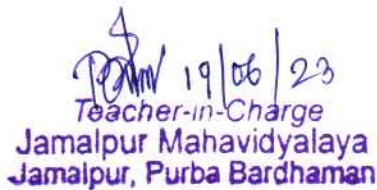 19/06/23
Teacher-in-Charge
Jamalpur Mahavidyalaya
Jamalpur, Purba Bardhaman